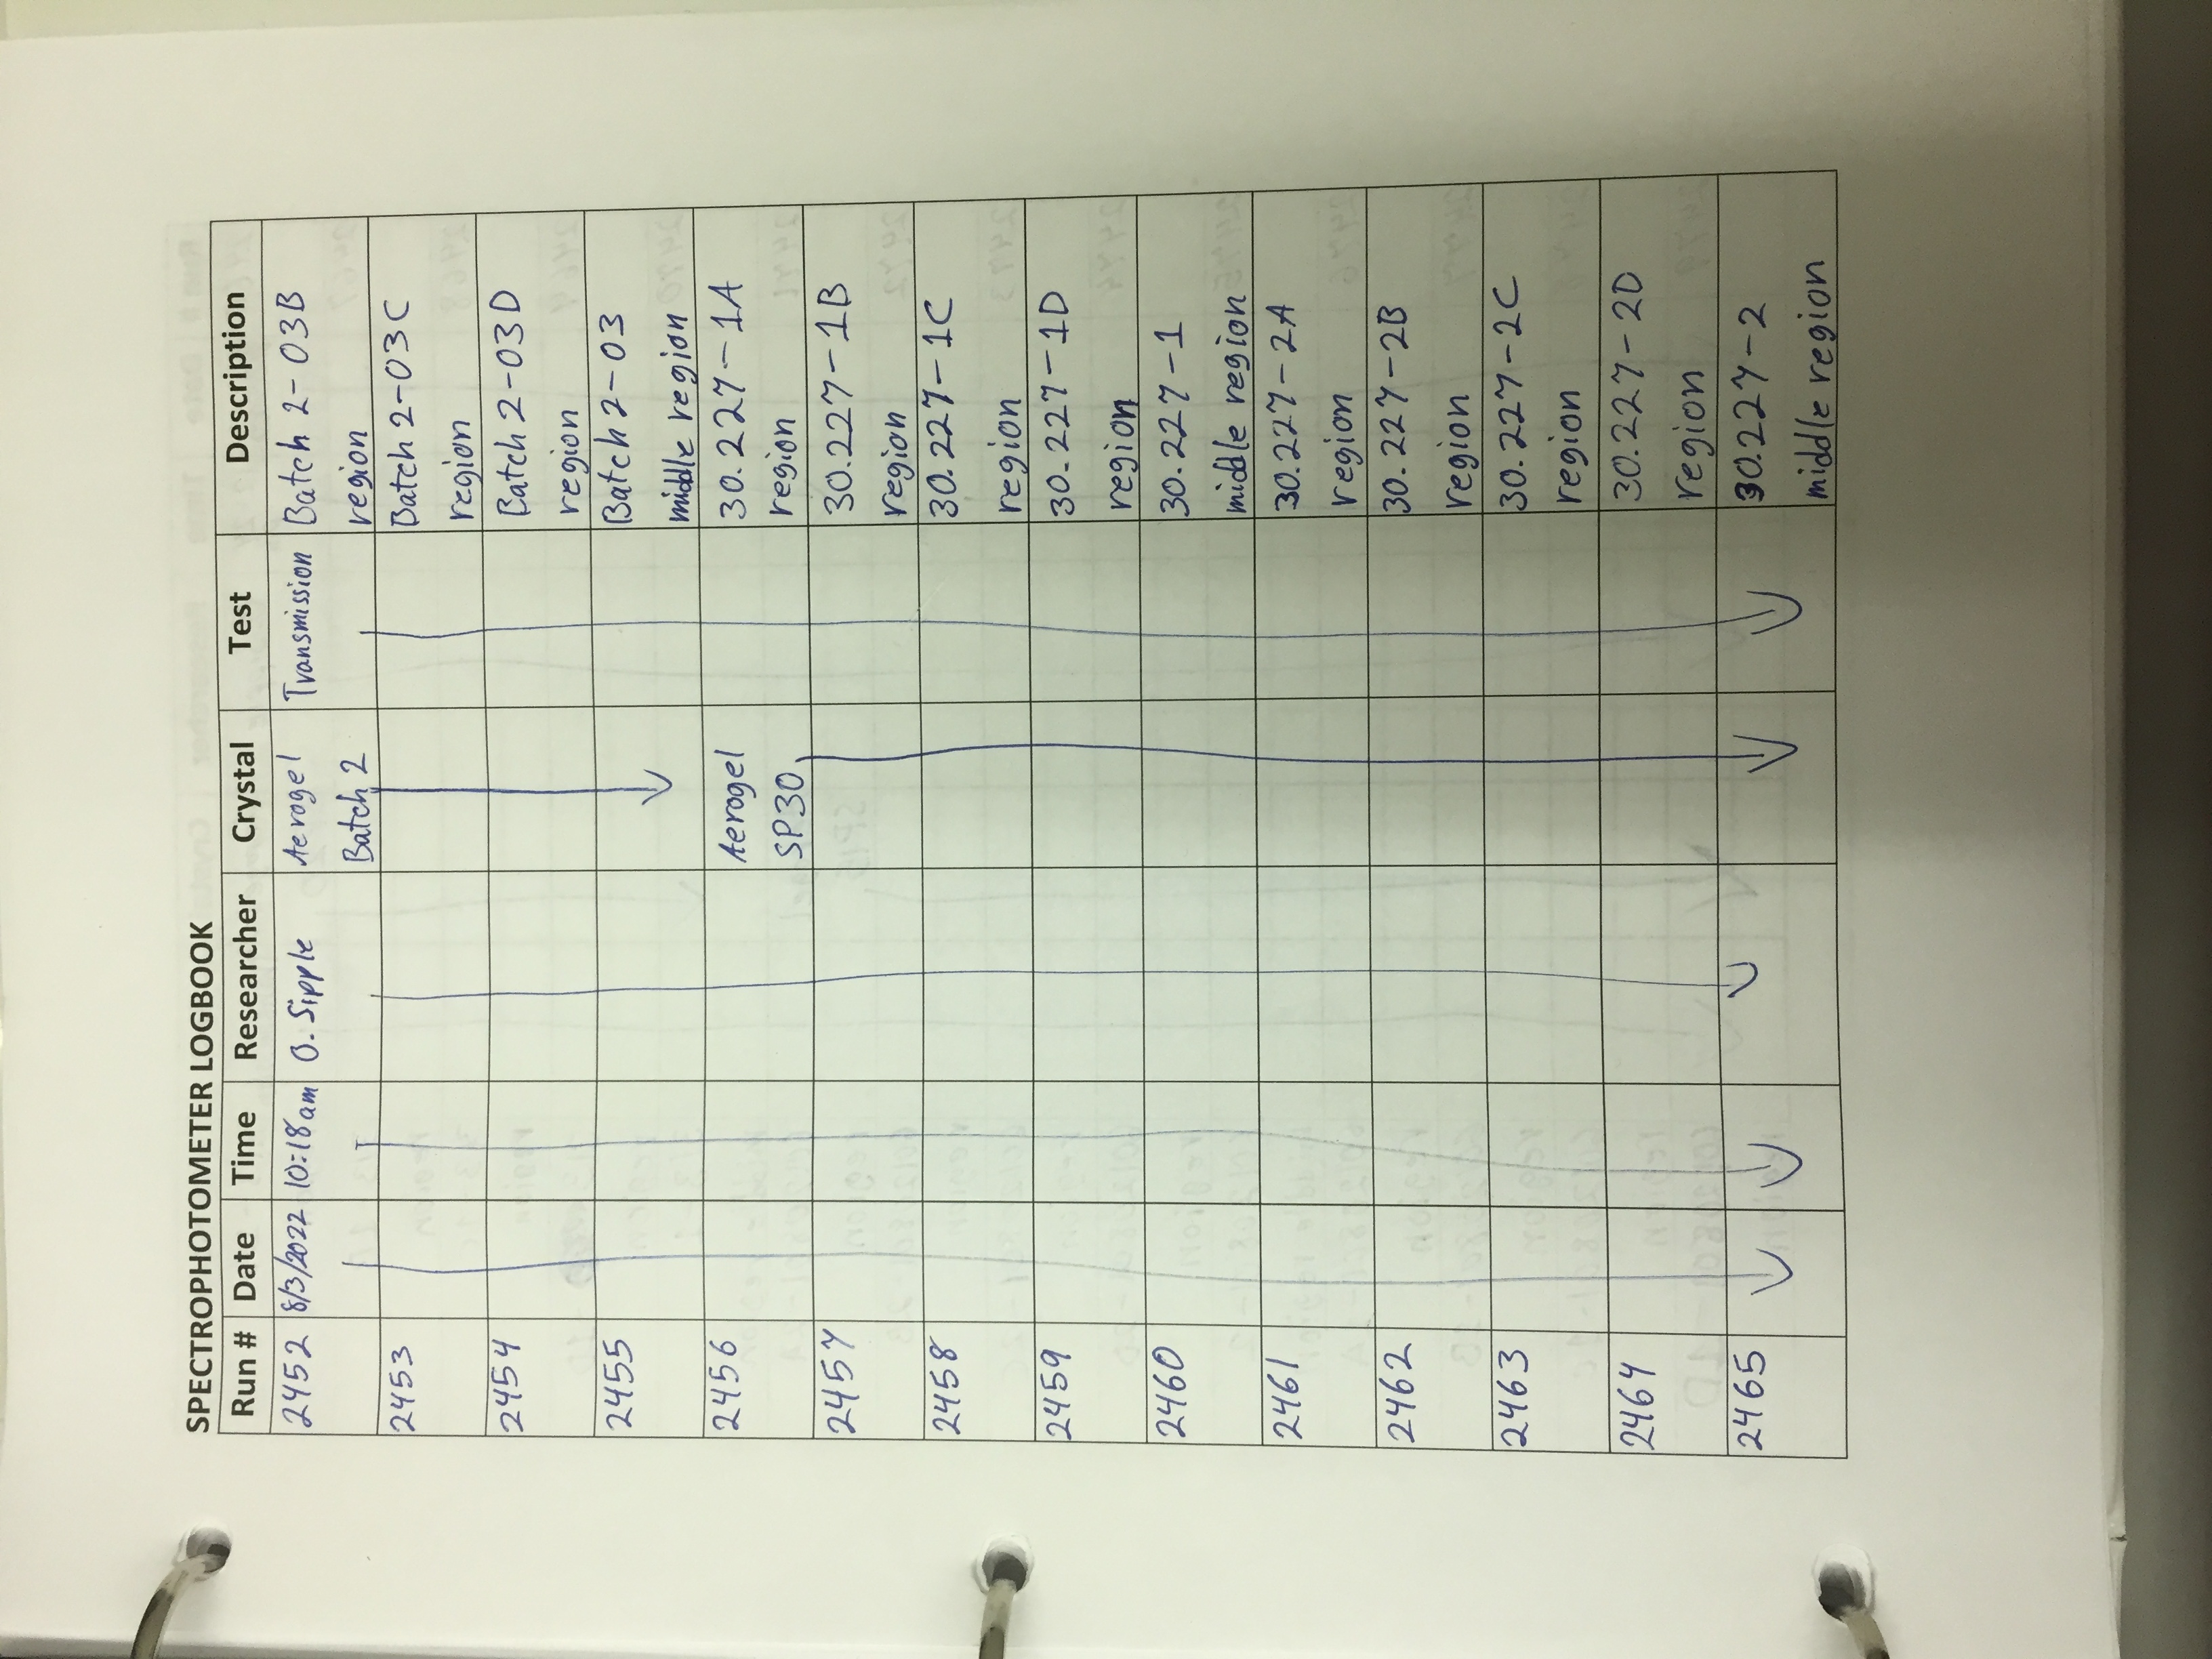 SPECTROPHOTOMETER LOGBOOK
Run # Date Time Researcher Crystal Test Description
2452 8/3/2022 10:18am O. Sipple Aerogel Transmission Batch 2-03B
Batch 2 region
2453 Batch 2-03C
region
2454 Batch 2-03D
region
2455 Batch 2-03
middle region
2456 Aerogel 30.227-1A
SP30 region
2457 30.227-1B
region
2458 30.227-1C
region
2459 30.227-1D
region
2460 30.227-1
middle region
2461 30.227-2A
region
2462 30.227-2B
region
2463 30.227-2C
region
2464 30.227-2D
region
2465 30.227-2
middle region